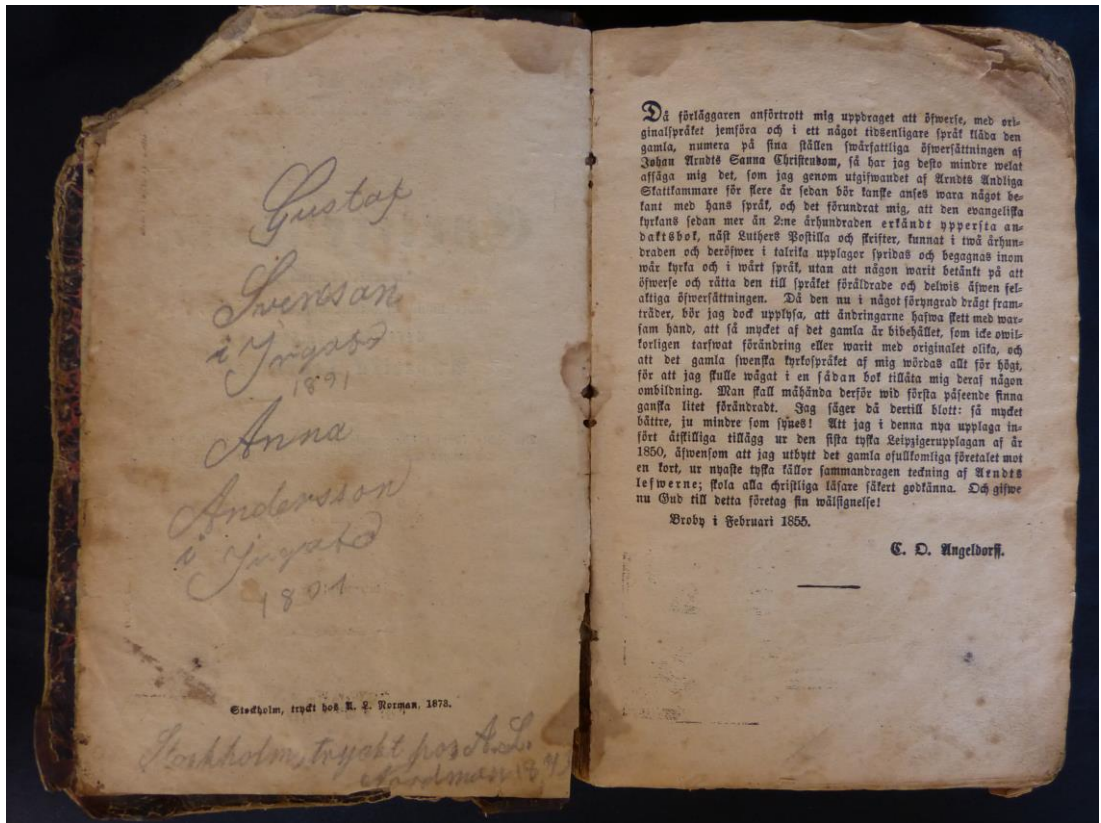 Gustaf
Svenson
i Ingatd
1891
Anna
Andersson
i Ingatd
1891
Stockholm, tryckt hos A. L. Norman, 1873.
Stockholm, tryckt hos A. L.
Nordman 187
Då förläggaren anförtrott mig uppdraget att öfwerse, med ori-
ginalspråket jemföra och i ett något tidsenligare språk kläda den
gamla, numera på sina ställen swårfattliga öfwersättningen af
Johan Arndts Sanna Christendom, så har jag desto mindre welat
afsäga mig det, som jag genom utgifwandet af Arndts Andliga
Skattkammare för flere år sedan bör kanske anses wara något be-
kant med hans språk, och det förundrat mig, att den evangeliska
kyrkans sedan mer än 2:ne århundraden erkändt yppersta an-
daktsbok, näst Luthers Postilla och skrifter, kunnat i twå århun-
draden och deröfwer i talrika upplagor spridas och begagnas inom
wår kyrka och i wårt språk, utan att någon warit betänkt på att
öfwerse och rätta den till språket föräldrade och delwis äfwen fel-
aktiga öfwersättningen. Då den nu i något föryngrad drägt fram-
träder, bör jag dock upplysa, att ändringarne hafwa skett med war-
sam hand, att så mycket af det gamla är bibehållet, som icke owil-
korligen tarfwat förändring eller warit med originalet olika, och
att det gamla swenska kyrkospråket af mig wördas allt för högt,
för att jag skulle wågat i en sådan bok tillåta mig deraf någon
ombildning. Man skall måhända derför wid första påseende finna
ganska litet förändradt. Jag säger då dertill blott: så mycket
bättre, ju mindre som synes! Att jag i denna nya upplaga in-
fört åtskilliga tillägg ur den sista tyska Leipzigerupplagan af år
1850, äfwensom att jag utbytt det gamla ofullkomliga företalet mot
en kort, ur nyaste tyska källor sammandragen teckning af Arndts
lefwerne; skola alla christliga läsare säkert godkänna. Och gifwe
nu Gud till detta företag sin wälsignelse!
Broby i Februari 1855.
C. O. Angeldorff.